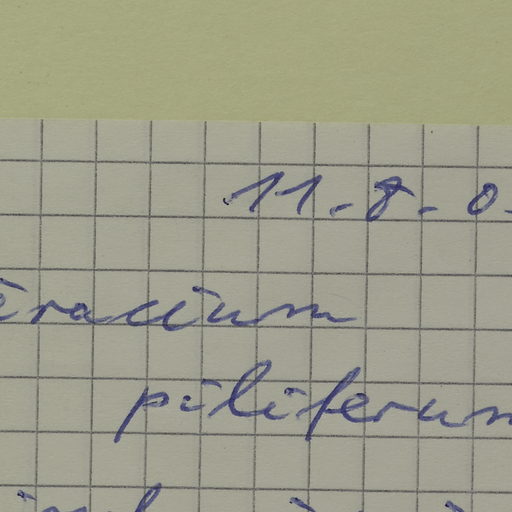 11.8.0
eracium
piliferum